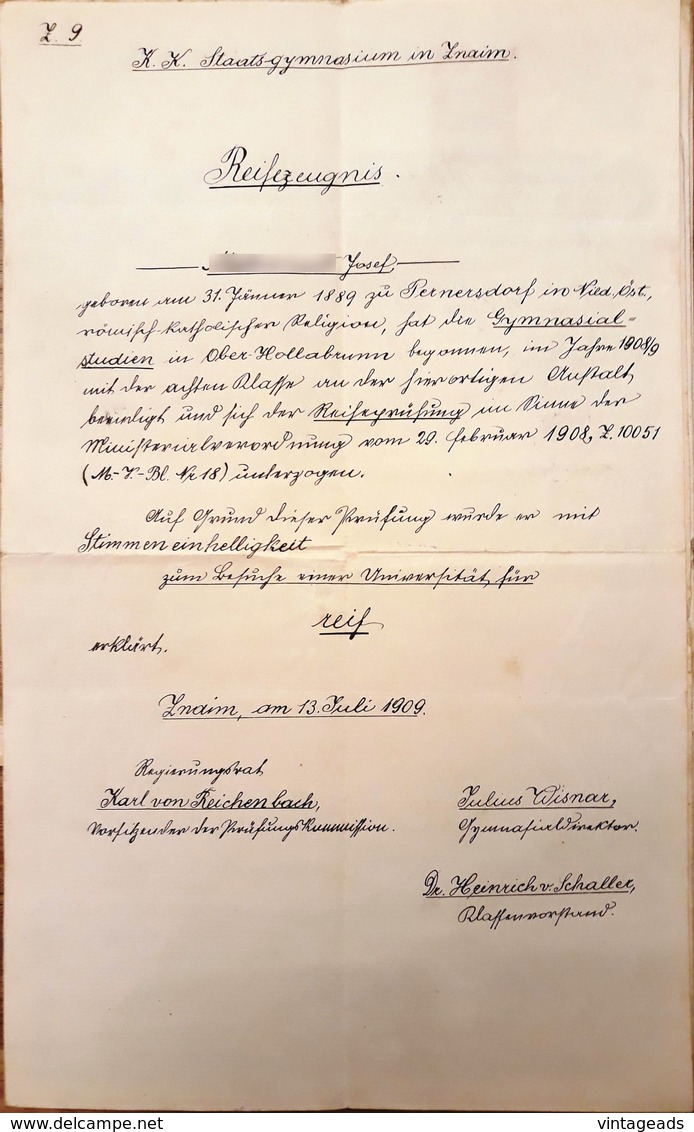 Z. 9
K. K. Staats-gymnasium in Znaim.
Reifezeugnis.
Josef,
geboren am 31. Jänner 1889 zu Pernersdorf in Nied. Öst.,
römisch-katholischer Religion, hat die Gymnasial-
studien in Ober-Hollabrunn begonnen, im Jahre 1908/9
mit der achten Klasse an der hierortigen Anstalt
beendigt und sich der Reifeprüfung im Sinne der
Ministerialverordnung vom 29. Februar 1908, Z. 10051
(M.-V.-Bl. Nr 18) unterzogen.
Auf Grund dieser Prüfung wurde er mit
Stimmeneinhelligkeit
zum Besuche einer Universität für
reif
erklärt.
Znaim, am 13. Juli 1909.
Regierungsrat
Karl von Reichenbach,
Vorsitzender der Prüfungskommission.
Julius Wisnar,
Gymnasialdirektor.
Dr. Heinrich v. Schaller,
Klassenvorstand.
www.delcampe.net
vintageads